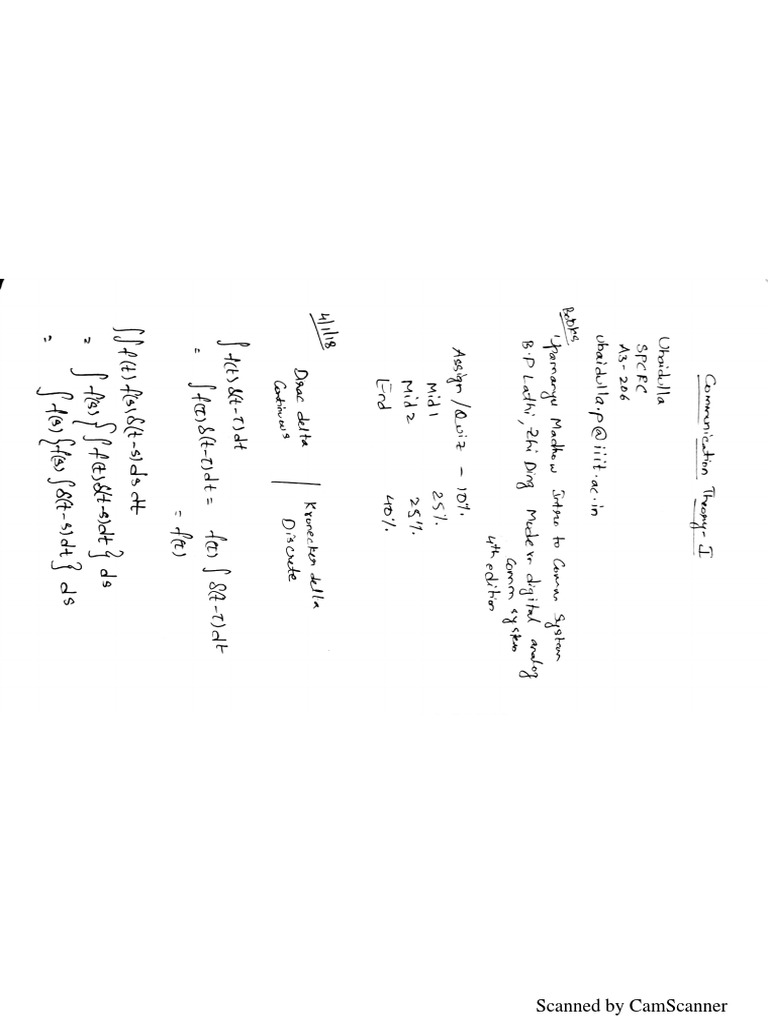 Communication Theory-I
Ubaidulla
SPCRC
A3-206
ubaidulla.p@iiit.ac.in
Books
Upamanyu Madhow Intro to Comm System
B.P Lathi, Zhi Ding Modern digital analog
comm system
4th edition
Assign/Quiz - 10%.
Mid1 25%.
Mid2 25%.
End 40%.
4/1/18
Dirac delta | Kronecker delta
Continuous | Discrete
∫ f(t) δ(t-τ) dt
= ∫ f(τ) δ(t-τ) dt = f(τ) ∫ δ(t-τ) dt
= f(τ)
∫∫ f(t) f(s) δ(t-s) ds dt
= ∫ f(s) { ∫ f(t) δ(t-s) dt } ds
= ∫ f(s) { f(s) ∫ δ(t-s) dt } ds
Scanned by CamScanner